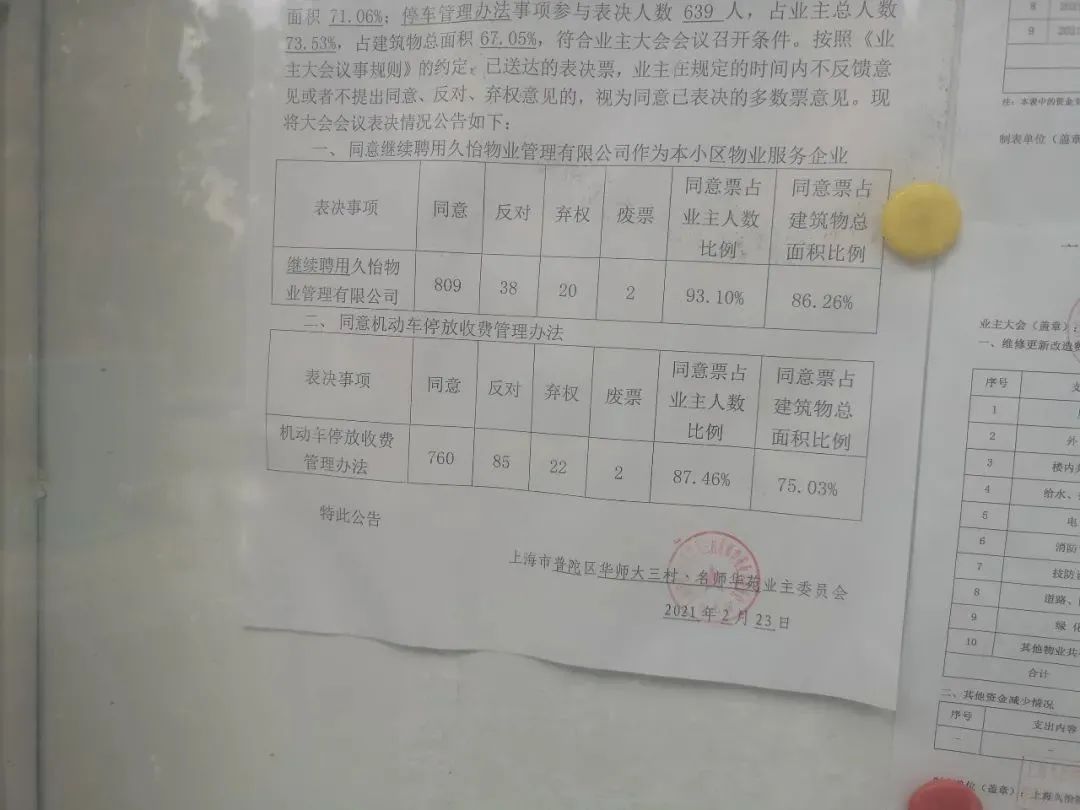 面积 71.06%；停车管理办法事项参与表决人数 639 人，占业主总人数
73.53%，占建筑物总面积 67.05%，符合业主大会会议召开条件。按照《业
主大会议事规则》的约定，已送达的表决票，业主在规定的时间内不反馈意
见或者不提出同意、反对、弃权意见的，视为同意已表决的多数票意见。现
将大会会议表决情况公告如下：
一、同意继续聘用久怡物业管理有限公司作为本小区物业服务企业
表决事项 同意 反对 弃权 废票 同意票占业主人数比例 同意票占建筑物总面积比例
继续聘用久怡物业管理有限公司 809 38 20 2 93.10% 86.26%
二、同意机动车停放收费管理办法
表决事项 同意 反对 弃权 废票 同意票占业主人数比例 同意票占建筑物总面积比例
机动车停放收费管理办法 760 85 22 2 87.46% 75.03%
特此公告
上海市普陀区华师大三村·名师华苑业主委员会
2021 年 2 月 23 日
8
9
注：本表中的资金支
制表单位（盖章
业主大会（盖章）：
一、维修更新改造费
序号 支
1
2 外
3 楼内
4 给水、
5 电
6 消防
7 技防
8 道路、
9 绿化
10 其他物业共
合计
二、其他资金减少情况
序号 支出内容
- -
单位（盖章）：上海久怡